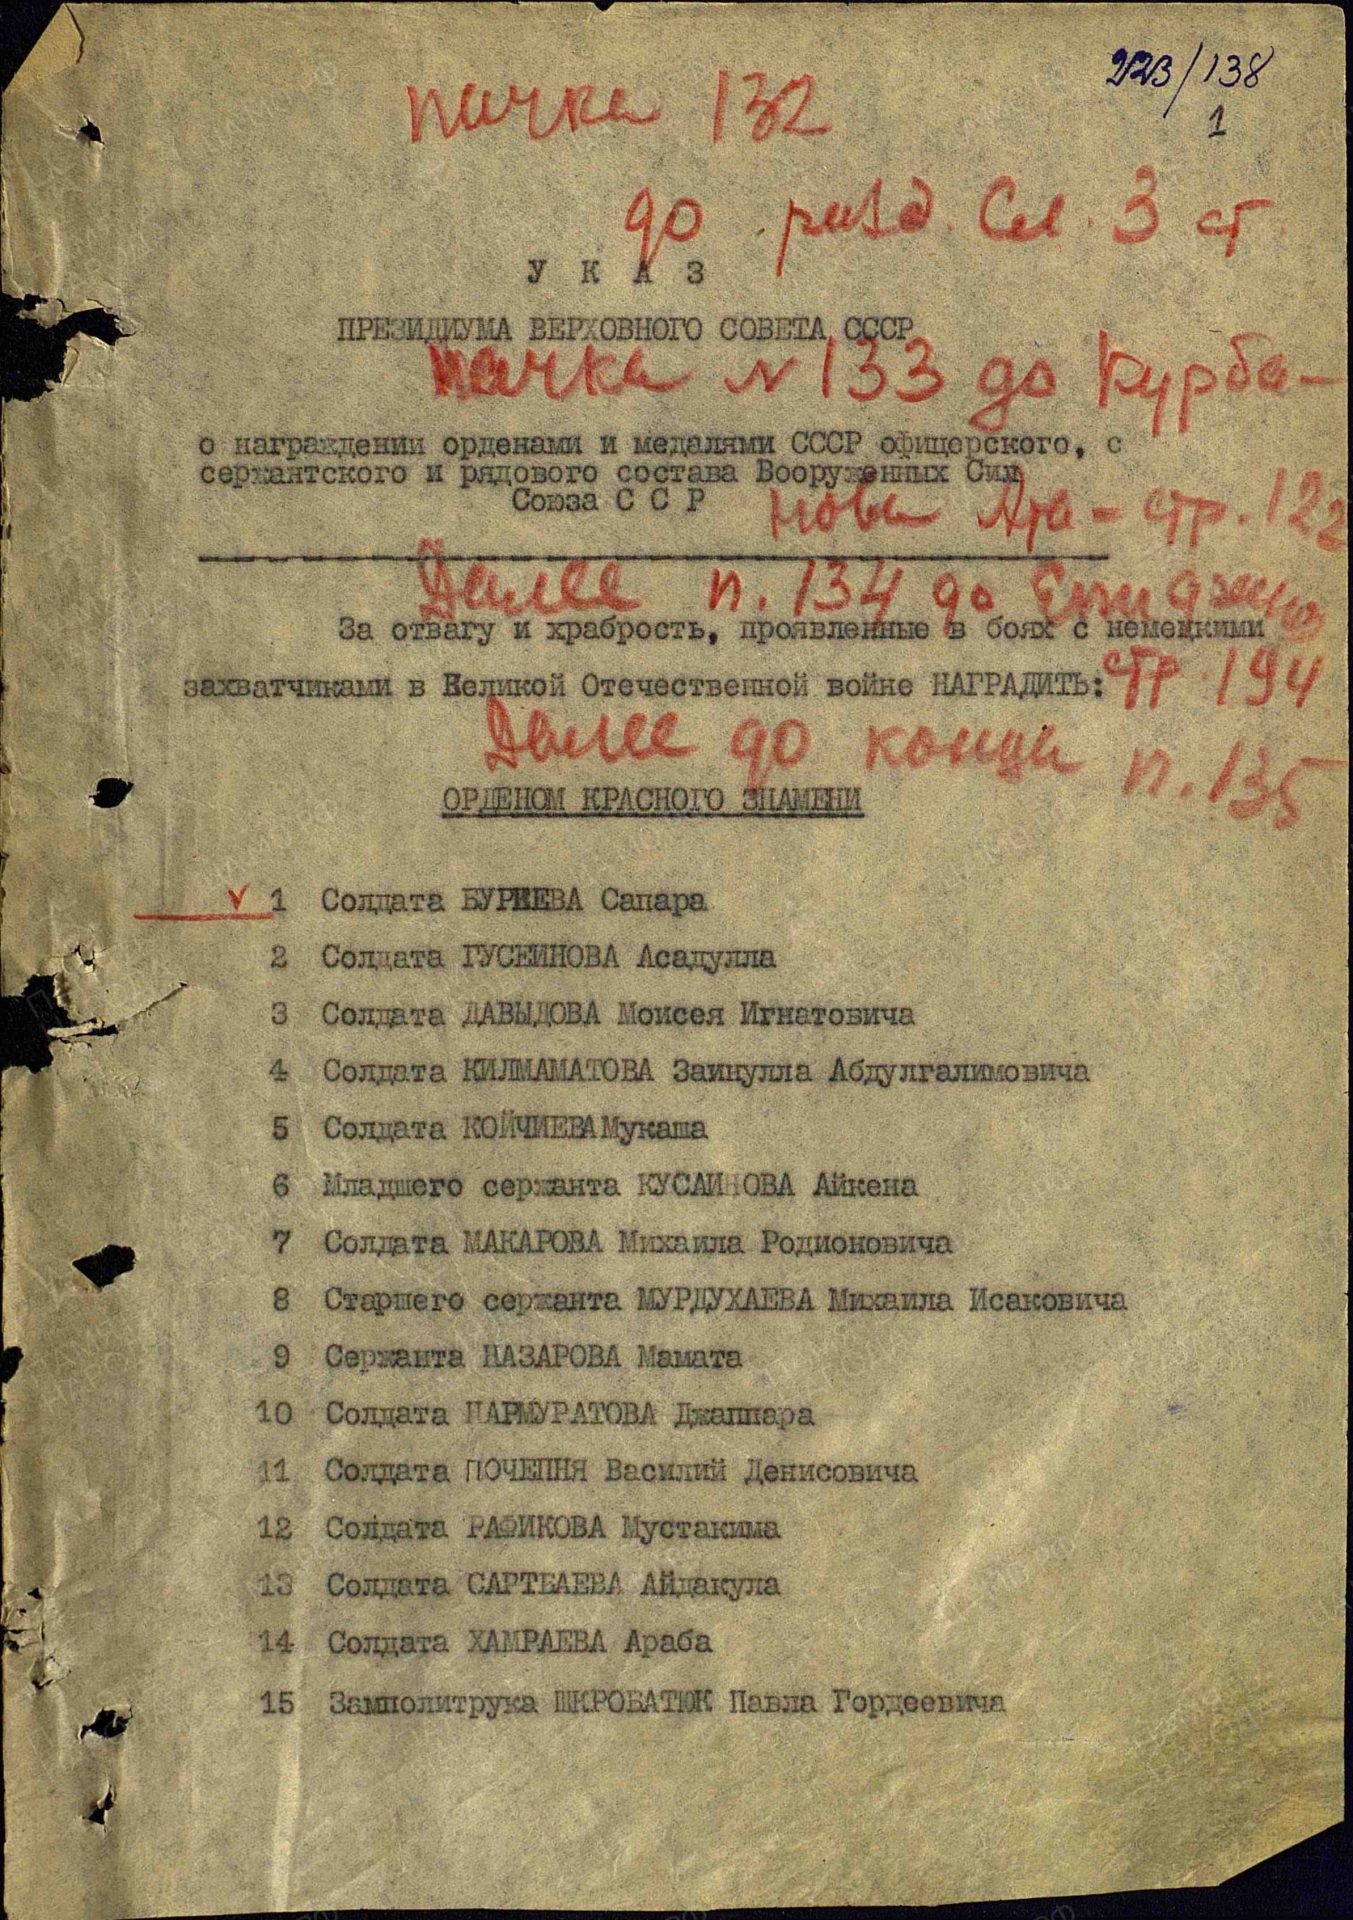 223/138
1
пачка 132
до разд. Сл. 3 ст
У К А З
ПРЕЗИДИУМА ВЕРХОВНОГО СОВЕТА СССР
пачка N 133 до Курба-
о награждении орденами и медалями СССР офицерского, с
сержантского и рядового состава Вооруженных Сил
Союза С С Р
нова Ата - стр. 122
Далее п. 134 до
За отвагу и храбрость, проявленные в боях с немецкими
захватчиками в Великой Отечественной войне НАГРАДИТЬ:
стр. 194
Далее до конца п. 135
ОРДЕНОМ КРАСНОГО ЗНАМЕНИ
1 Солдата БУРИЕВА Сапара
2 Солдата ГУСЕИНОВА Асадулла
3 Солдата ДАВЫДОВА Моисея Игнатовича
4 Солдата КИЛМАМАТОВА Заинулла Абдулгалимовича
5 Солдата КОЙЧИЕВА Мукаша
6 Младшего сержанта КУСАИНОВА Айкена
7 Солдата МАКАРОВА Михаила Родионовича
8 Старшего сержанта МУРДУХАЕВА Михаила Исаковича
9 Сержанта НАЗАРОВА Мамата
10 Солдата НАРМУРАТОВА Джаппара
11 Солдата ПОЧЕПНЯ Василий Денисовича
12 Солдата РАФИКОВА Мустакима
13 Солдата САРТБАЕВА Айдакула
14 Солдата ХАМРАЕВА Араба
15 Замполитрука ШКРОБАТЮК Павла Гордеевича